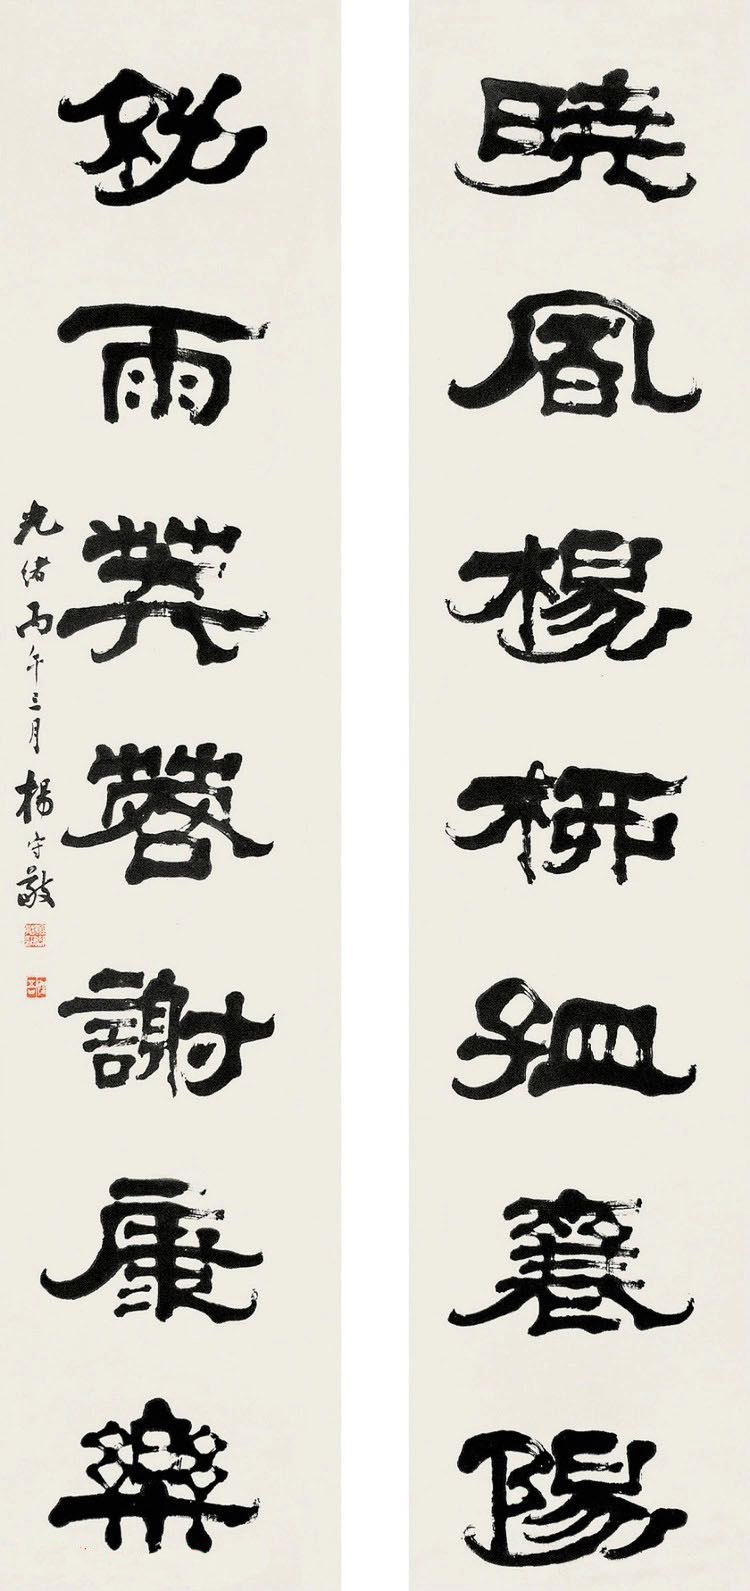 曉風楊柳孟襄陽
秋雨芙蓉謝康樂
光緒丙午三月楊守敬